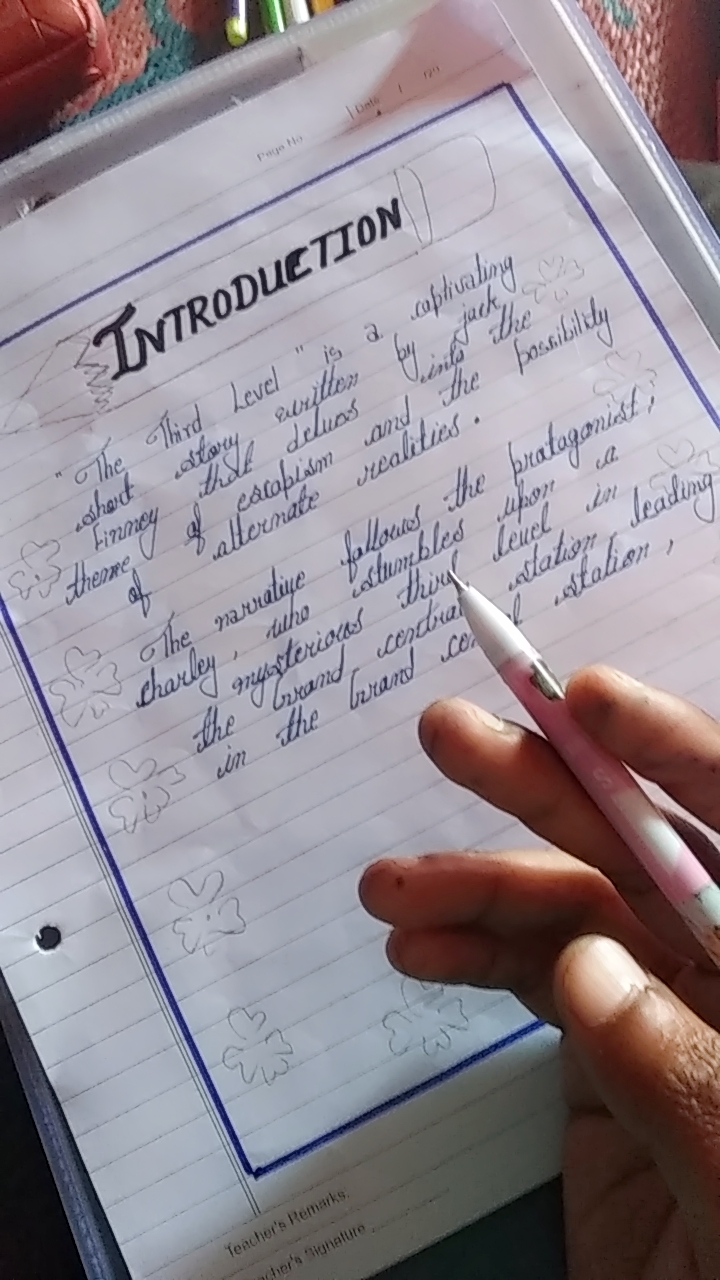 Page No.
Date
INTRODUCTION
"The Third Level" is a captivating
short story written by jack
Finney that delves into the
theme of escapism and the possibility
of alternate realities.
The narrative follows the protagonist,
charley, who stumbles upon a
mysterious third level in
the Grand central station, leading
in the Grand central station,
Teacher's Remarks
Teacher's Signature